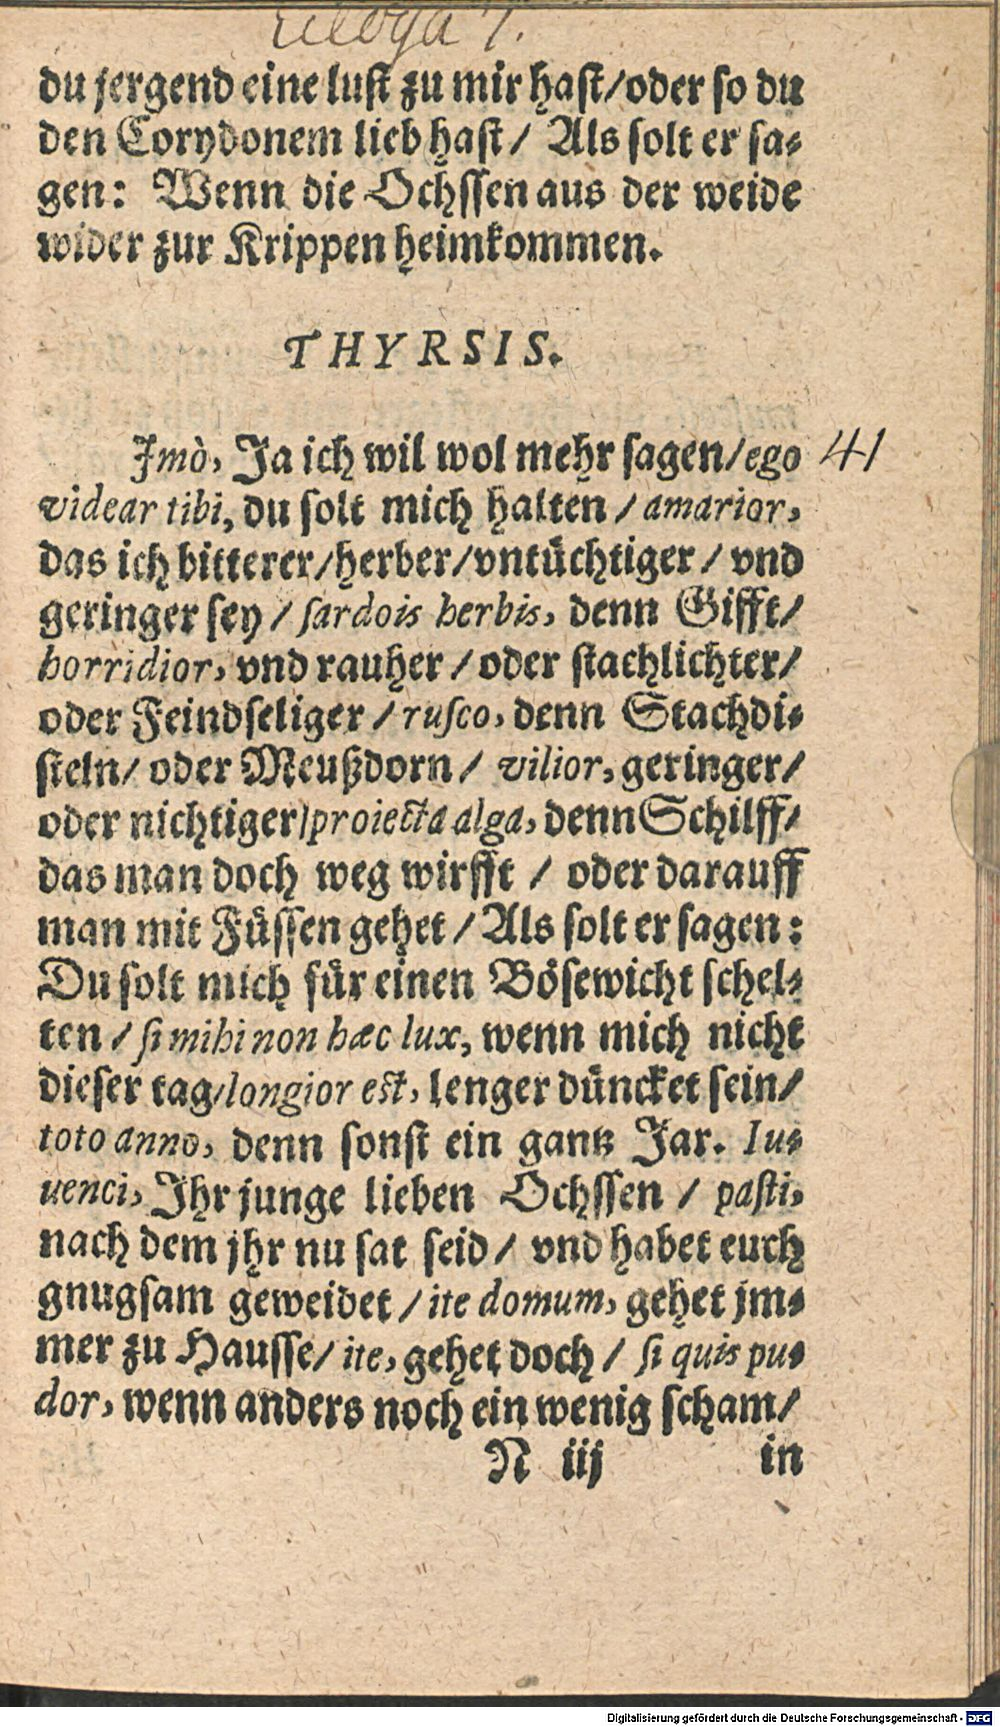 Ecloga 7.
du jergend eine lust zu mir hast/oder so du
den Corydonem lieb hast/ Als solt er sa-
gen: Wenn die Ochssen aus der weide
wider zur Krippen heimkommen.
THYRSIS.
Jmò, Ja ich wil wol mehr sagen/ego 41
videar tibi, du solt mich halten / amarior,
das ich bitterer/herber/vntüchtiger / vnd
geringer sey / sardois herbis, denn Gifft/
horridior, vnd rauher / oder stachlichter/
oder Feindseliger / rusco, denn Stachdi-
steln/ oder Meußdorn / vilior, geringer/
oder nichtiger/proiecta alga, denn Schilff/
das man doch weg wirfft / oder darauff
man mit Füssen gehet / Als solt er sagen:
Du solt mich für einen Bösewicht schel-
ten / si mihi non hæc lux, wenn mich nicht
dieser tag/longior est, lenger düncket sein/
toto anno, denn sonst ein gantz Jar. Iu-
uenci, Jhr junge lieben Ochssen / pasti,
nach dem jhr nu sat seid / vnd habet euch
gnugsam geweidet / ite domum, gehet jm-
mer zu Hausse/ ite, gehet doch / si quis pu-
dor, wenn anders noch ein wenig scham/
N iij in
Digitalisierung gefördert durch die Deutsche Forschungsgemeinschaft - DFG